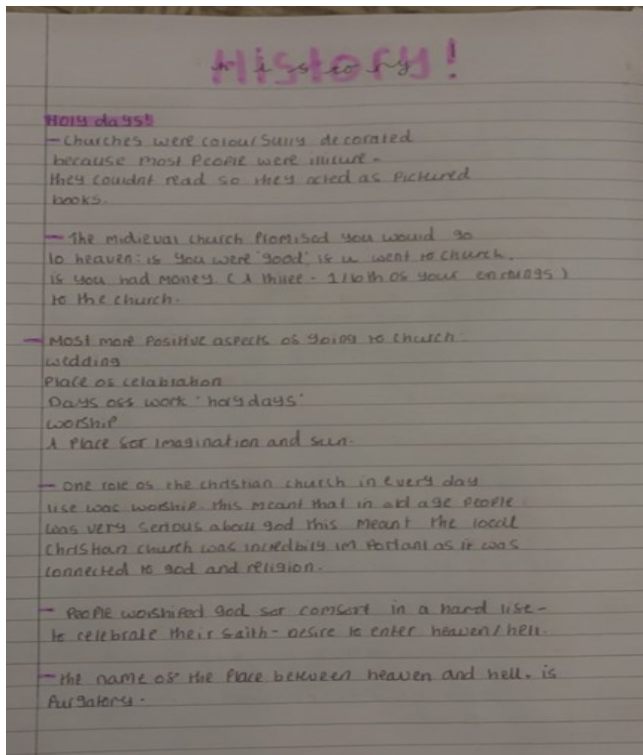 History!
history
Holy days!!
- Churches were colourfully decorated
because most people were illiture.
they couldnt read so they acted as pictured
books.
- The midieval church promised you would go
to heaven: if you were 'good' if u went to church.
if you had money. (A thire - 1/10th of your earnings)
to the church.
- Most more positive aspects of going to church:
wedding
Place of celabration
Days off work 'holydays'
worship
A place for imagination and fun.
- One role of the christian church in every day
life was worship. this meant that in old age people
was very serious about god this meant the local
Christian church was incredbily important as it was
connected to god and religion.
- People worshiped god for comfort in a hard life -
to celebrate their faith - desire to enter heaven/hell.
- the name of the place between heaven and hell. is
Purgatory.